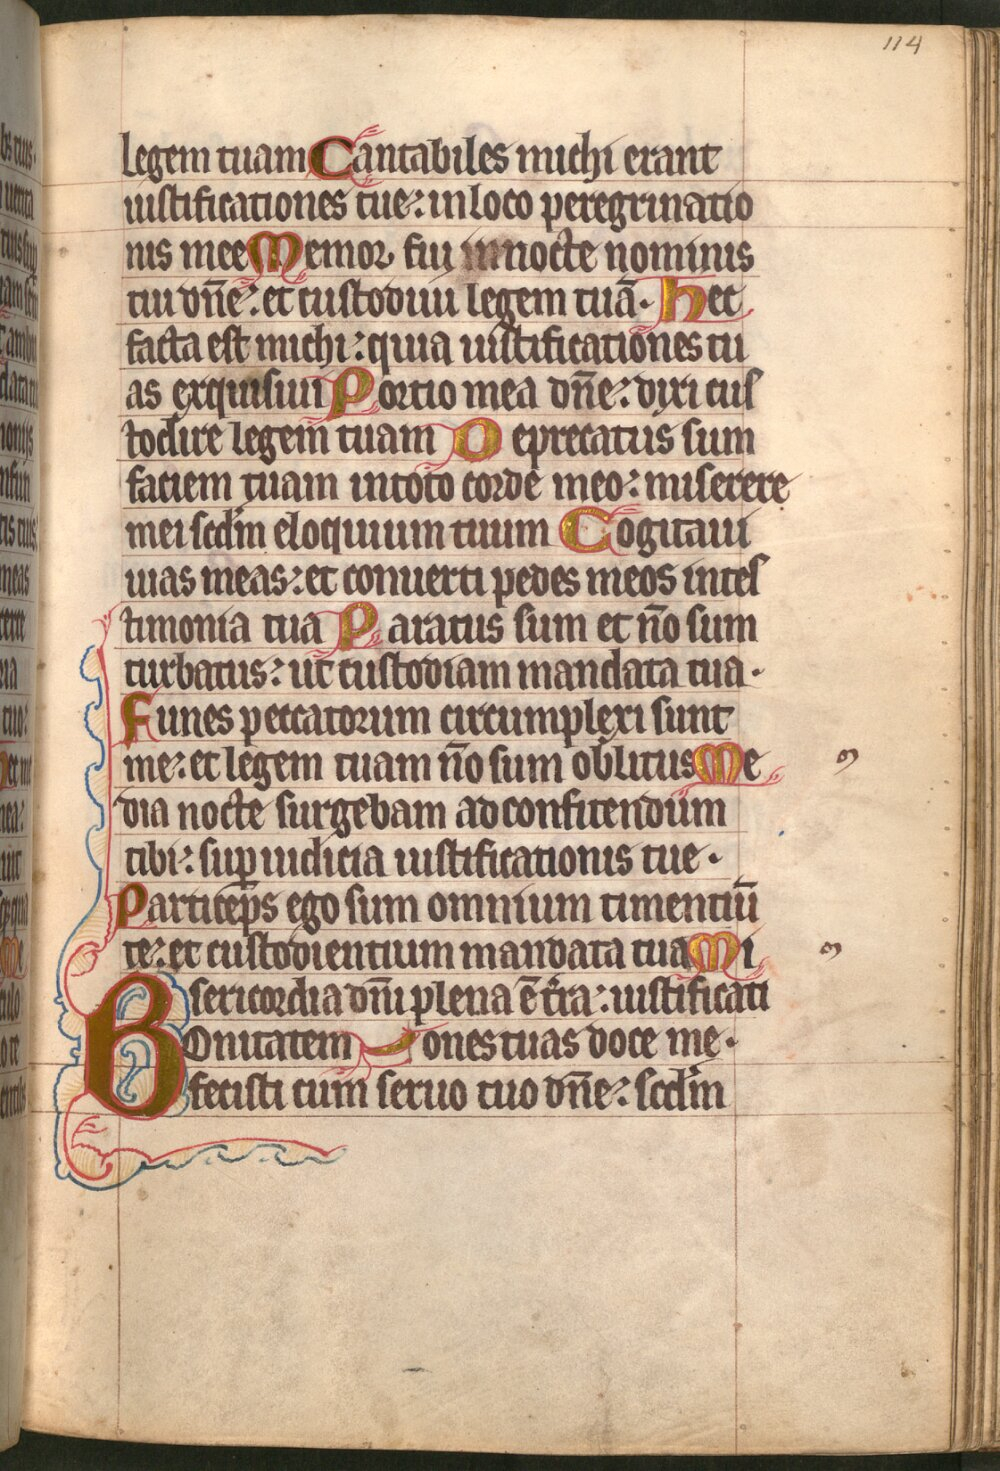 114
legem tuam Cantabiles michi erant
iustificationes tue: in loco peregrinatio
nis mee Memor fui in nocte nominis
tui dn̄e: et custodiui legem tuā. Hec
facta est michi: quia iustificationes tu
as exquisiui Portio mea dn̄e: dixi cus
todire legem tuam Deprecatus sum
faciem tuam in toto corde meo: miserere
mei scd̄m eloquium tuum Cogitaui
uias meas: et conuerti pedes meos in tes
timonia tua Paratus sum et nō sum
turbatus: ut custodiam mandata tua.
Funes peccatorum circumplexi sunt
me: et legem tuam nō sum oblitus Me
dia nocte surgebam ad confitendum
tibi: sup iudicia iustificationis tue.
Particeps ego sum omnium timentiū
te: et custodientium mandata tua Mi
sericordia dn̄i plena ē t̄ra: iustificati
Bonitatem ones tuas doce me.
fecisti cum seruo tuo dn̄e: scd̄m